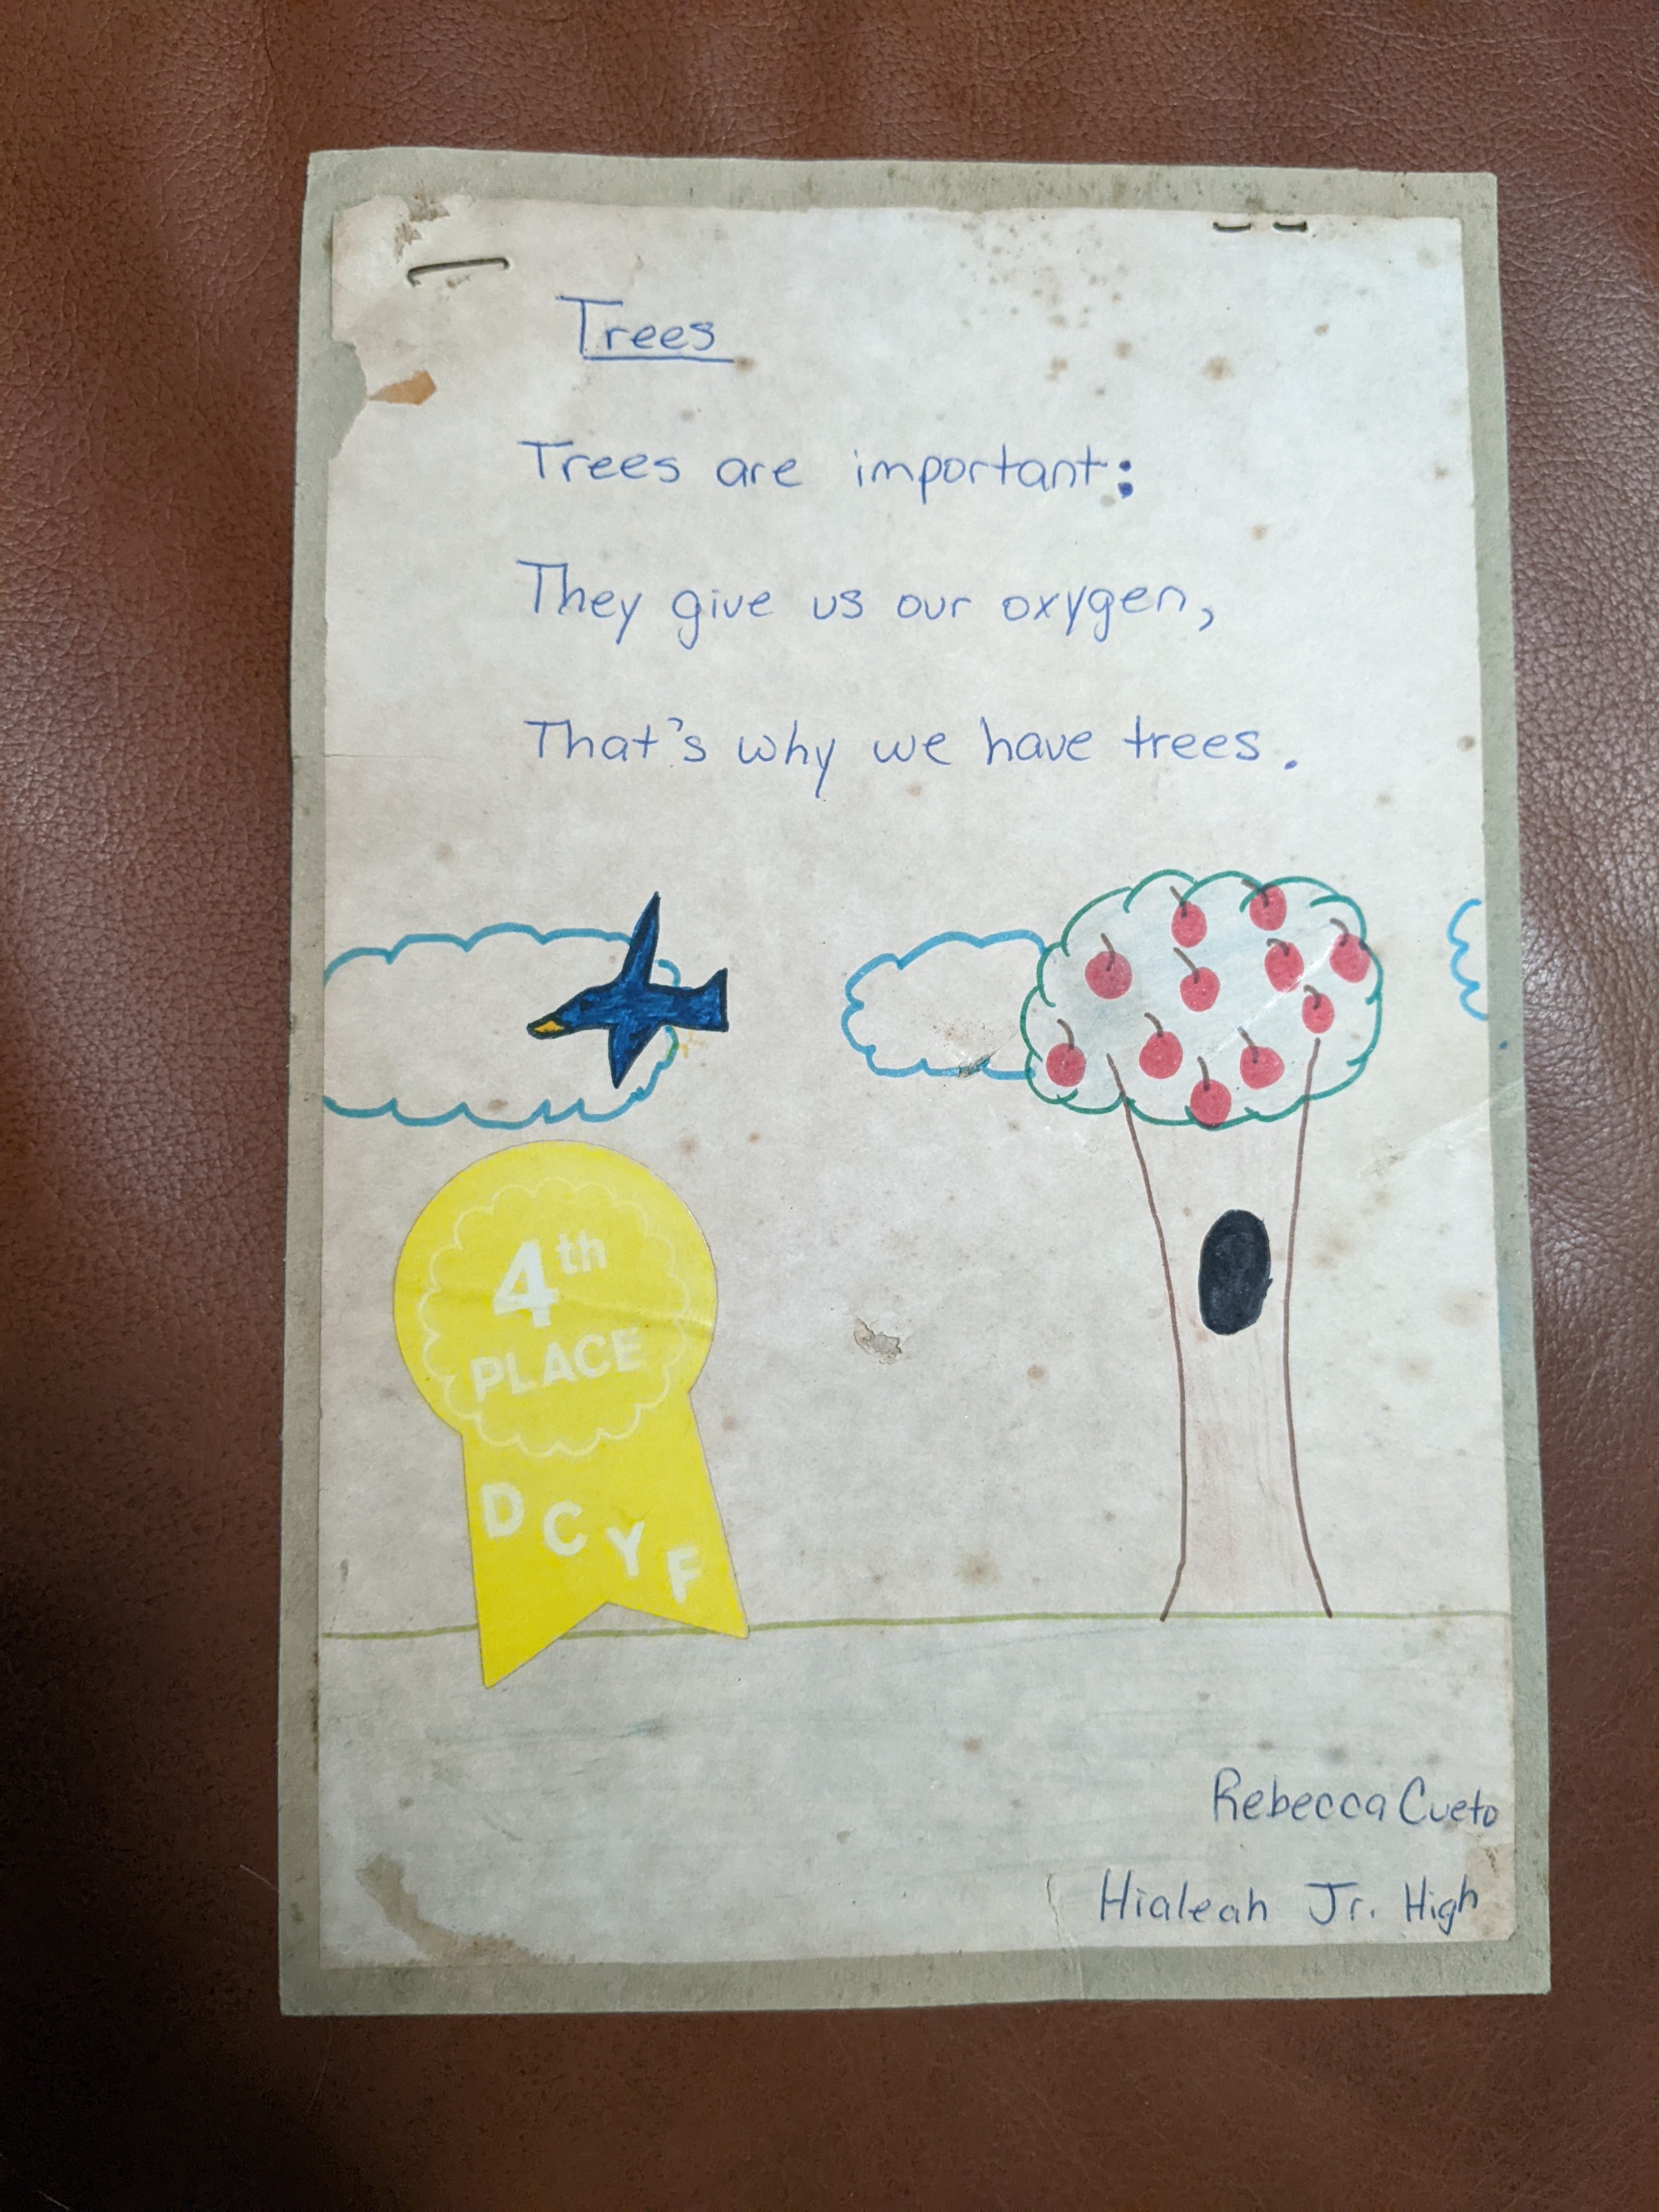 Trees
Trees are important:
They give us our oxygen,
That's why we have trees.
4th
PLACE
D C Y F
Rebecca Cueto
Hialeah Jr. High